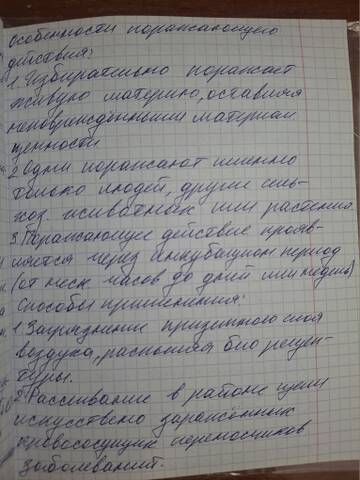 Особенности поражающего
действия:
1. Избирательно поражает
живую материю, оставляя
неповрежденными материал
ценности
2. Одни поражают именно
только людей, другие сель-
хоз. животных или растения
3. Поражающее действие прояв-
ляется через инкубацион период
(от неск. часов до дней или недель)
Способы применения:
1. Загрязнение приземного слоя
воздуха, распыляя био рецеп-
туры.
2. Рассеивание в районе цели
искусствено зараженных
кровососущих переносчиков
заболеваний.